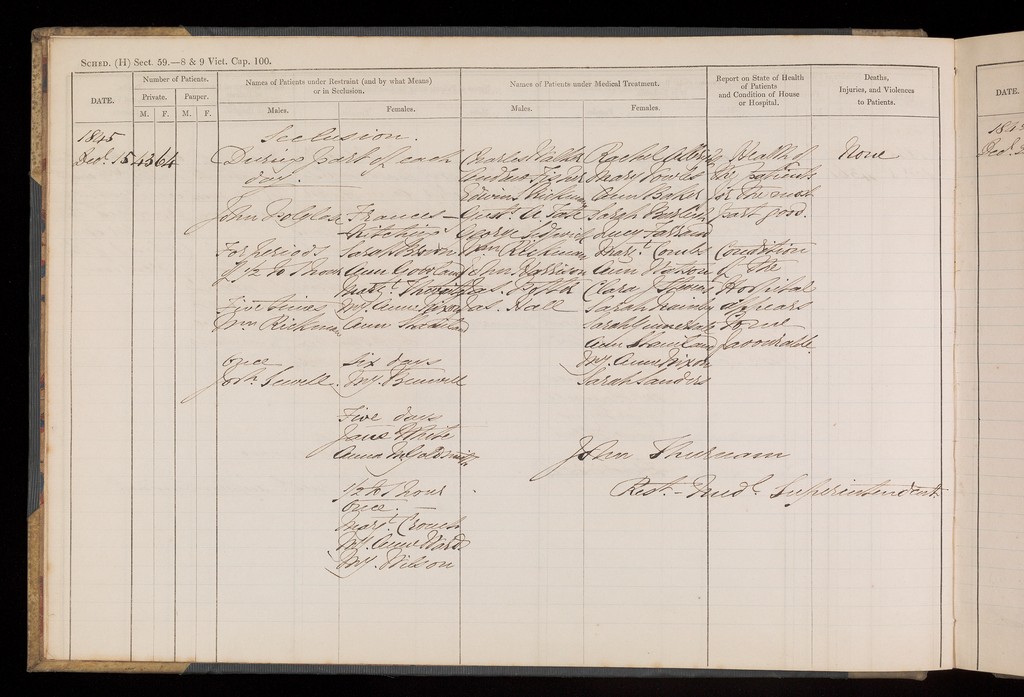 SCHED. (H) Sect. 59.—8 & 9 Vict. Cap. 100.
DATE.
Number of Patients.
Private.
Pauper.
M. F. M. F.
Names of Patients under Restraint (and by what Means)
or in Seclusion.
Males.
Females.
Names of Patients under Medical Treatment.
Males.
Females.
Report on State of Health
of Patients
and Condition of House
or Hospital.
Deaths,
Injuries, and Violences
to Patients.
1845
Decr. 15
43
64
Seclusion.
During part of each
day.
John
For periods
of 1/2 to 1 hour
Five times
Wm Richman
Once
Josh. Sewell
Frances
Sarah Brown
Ann
Margt.
My. Anne Dixon
Ann
Six days
My.
Five days
Jane White
Anna M Goldsmith
1/2 to 1 hour
Once.
Margt. Crouch
My. Anne Ward
My. Wilson
Charles Walker
Gustavus Fisher
Edwin Richman
George
Wm Richman
John Harrison
Jas.
Jas. Hall
Rachel
Mary
Ann Baker
Sarah
Lucy
Margt. Combs
Ann
Clara
Sarah
Sarah
Ann
My. Anne Dixon
Sarah Sanders
Health of
the patients
for the most
part good.
Condition
of the
Hospital
appears
to me
favourable.
None
John Thurnam
Rest. - Medl. Superintendent
DATE.
1845
Decr.